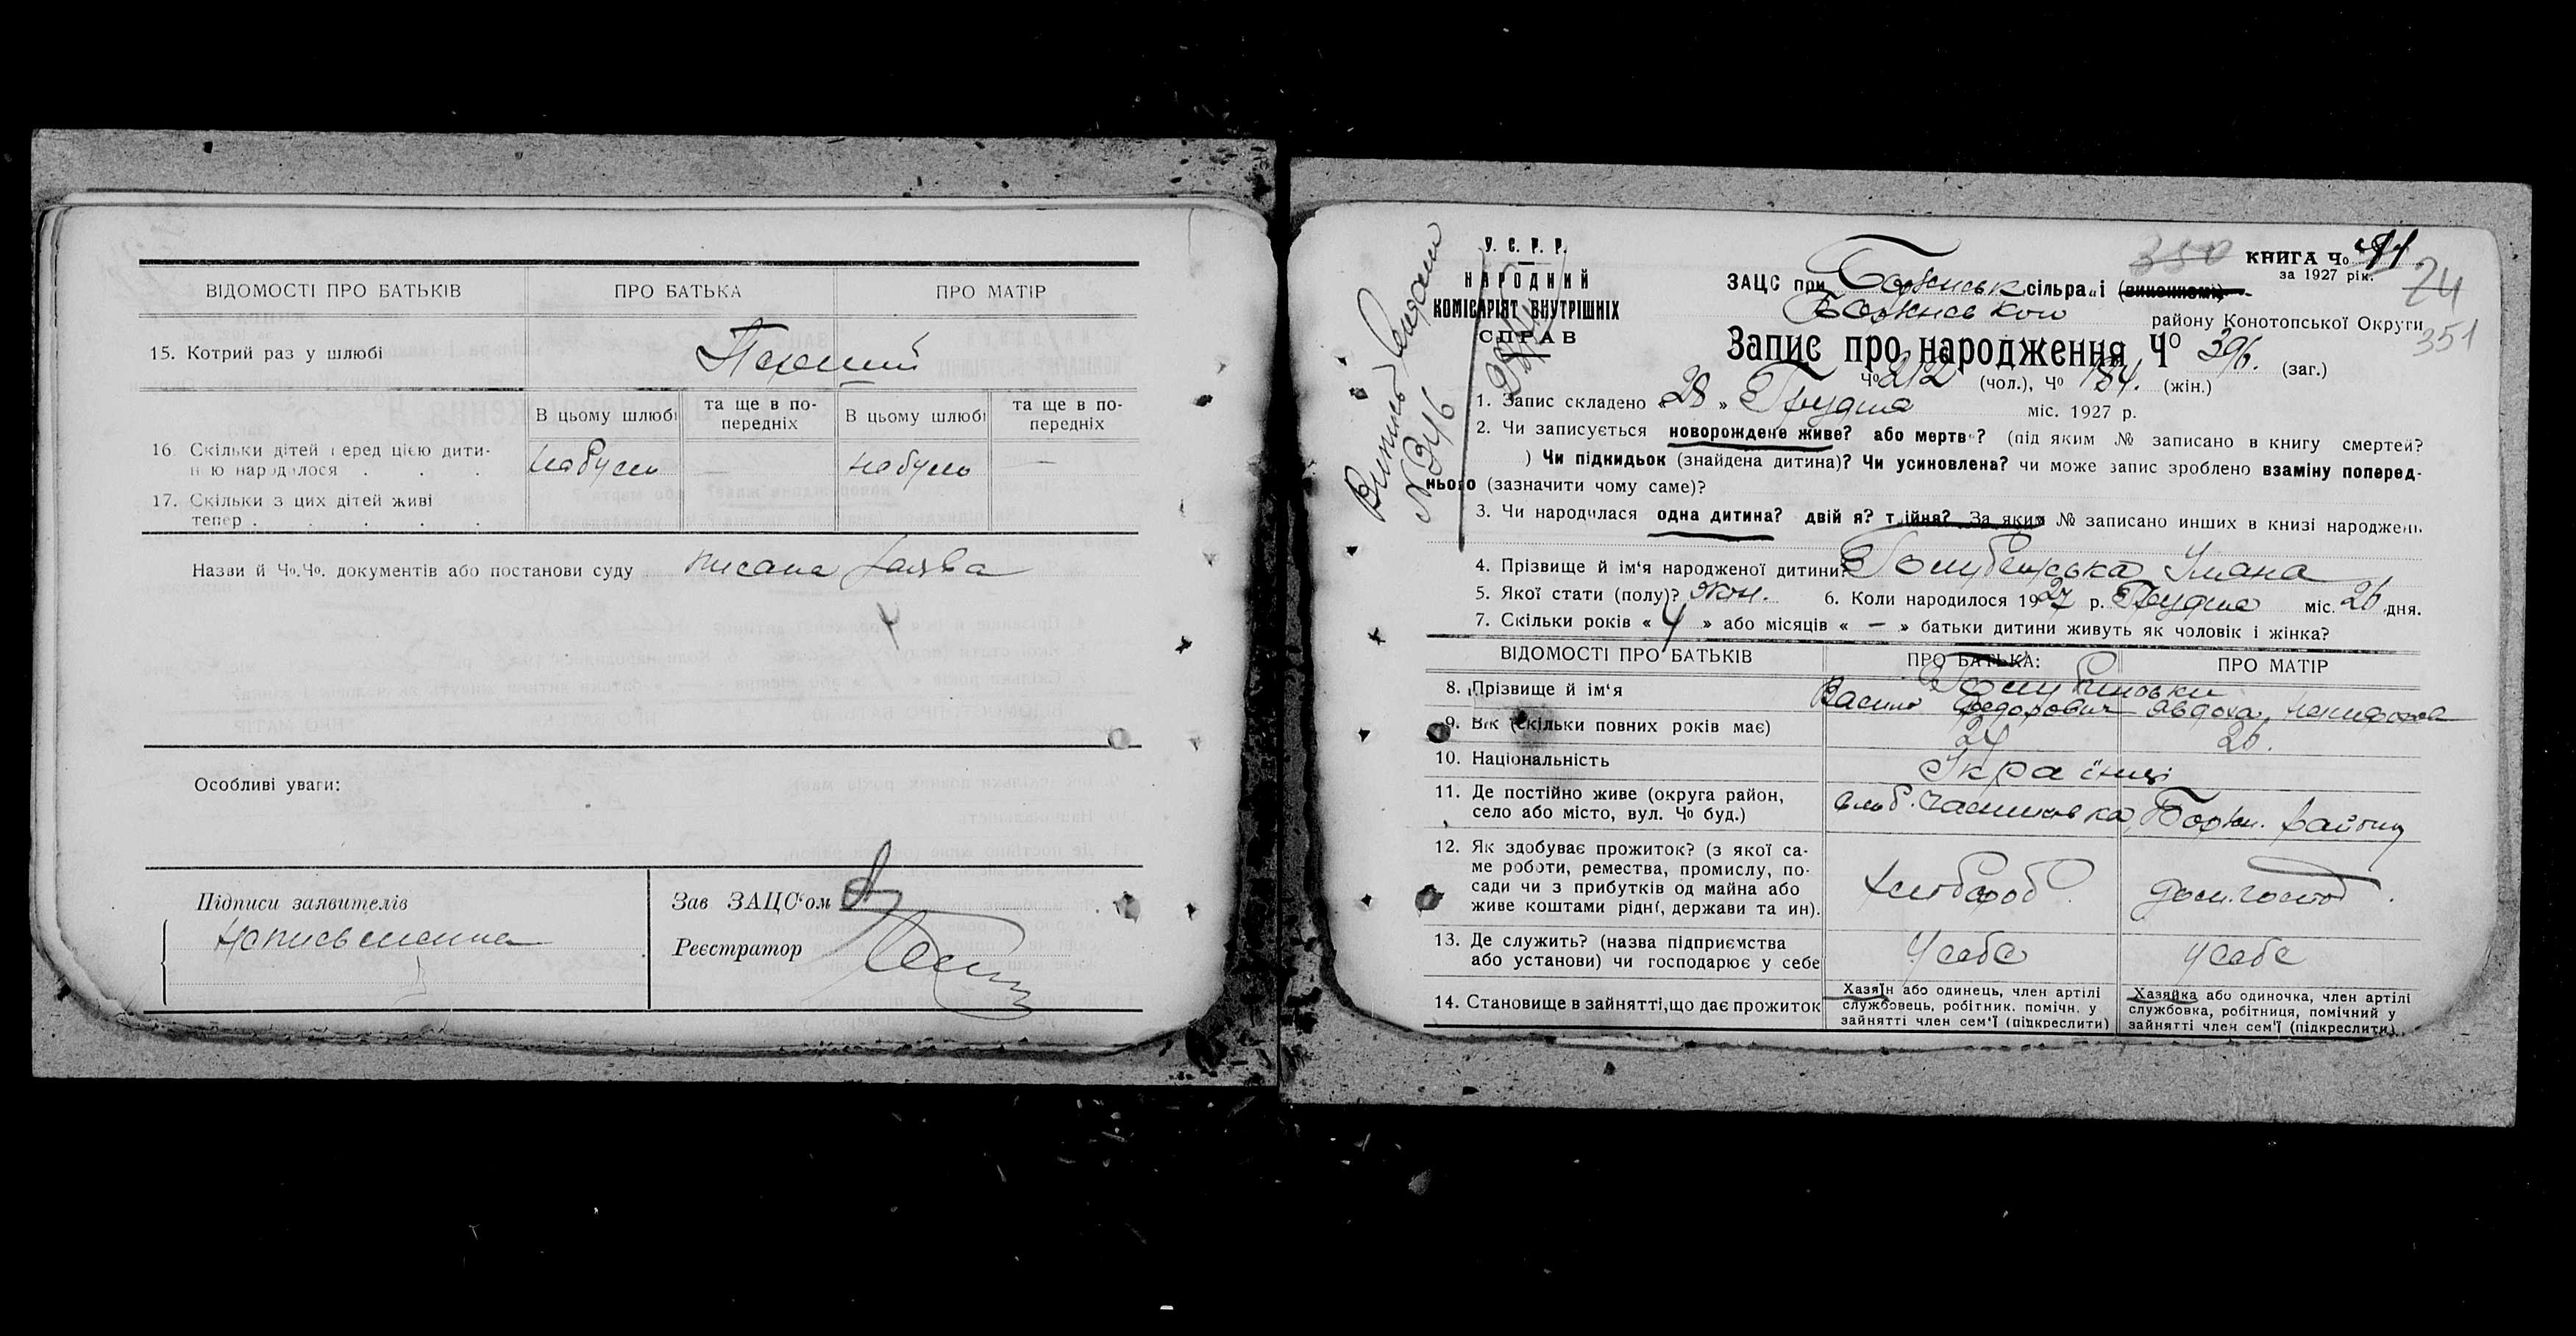 ВІДОМОСТІ ПРО БАТЬКІВ ПРО БАТЬКА ПРО МАТІР
15. Котрий раз у шлюбі Перший
В цьому шлюбі та ще в по- В цьому шлюбі та ще в по-
передніх передніх
16 Скільки дітей перед цією дити-
ною народилося . . . небуло — небуло —
17. Скільки з цих дітей живі
тепер . . . . .
Назви й Чо.Чо. документів або постанови суду писана заява
Особливі уваги:
Підписи заявителів Зав ЗАЦС‘ом
неписьменна
Реєстратор
У. С. Р. Р.
НАРОДНИЙ
КОМІСАРІЯТ ВНУТРІШНІХ
СПРАВ
№ 346
350 КНИГА Чо 41
за 1927 рік.
74
351
ЗАЦС при Борзнськ сільраді (виконкомі)
Борзнського району Конотопської Округи
Запис про народження Чо 396. (заг.)
Чо 212 (чол.), Чо 184. (жін.)
1. Запис складено « 28 » Грудня міс. 1927 р.
2. Чи записується новорождене живе? або мертве? (під яким № записано в книгу смертей?
) Чи підкидьок (знайдена дитина)? Чи усиновлена? чи може запис зроблено взаміну поперед-
нього (зазначити чому саме)?
3. Чи народилася одна дитина? двійня? трійня? За яким № записано инших в книзі народжень
4. Прізвище й ім‘я народженої дитини?
5. Якої стати (полу)? жін. 6. Коли народилося 1927 р. Грудня міс. 26 дня.
7. Скільки років « 4 » або місяців « — » батьки дитини живуть як чоловік і жінка?
ВІДОМОСТІ ПРО БАТЬКІВ ПРО БАТЬКА: ПРО МАТІР
8. Прізвище й ім‘я
Василь Федорович Авдоха
9. Вік (скільки повних років має) 24 26.
10. Національність Українці
11. Де постійно живе (округа район,
село або місто, вул. Чо буд.) Борзн. району
12. Як здобуває прожиток? (з якої са-
ме роботи, ремества, промислу, по-
сади чи з прибутків од майна або
живе коштами рідні, держави та ин). хлібороб. дом. господ.
13. Де служить? (назва підприємства
або установи) чи господарює у себе У себе У себе
14. Становище в зайнятті, що дає прожиток
Хазяїн або одинець, член артілі
службовець, робітник. помічн. у
зайнятті член сем‘ї (підкреслити)
Хазяйка або одиночка, член артілі
службовка, робітниця, помічний у
зайнятті член сем‘ї (підкреслити)